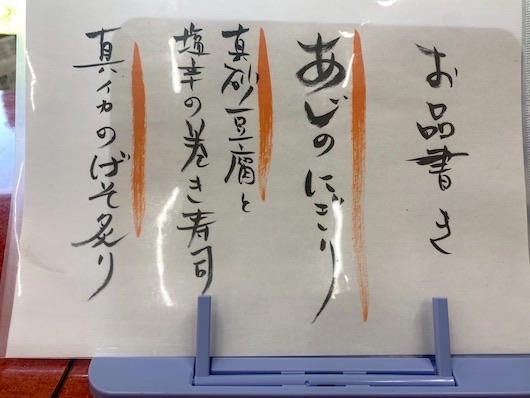 お品書き
あじのにぎり
真砂豆腐と
塩辛の巻き寿司
真イカのげそ炙り